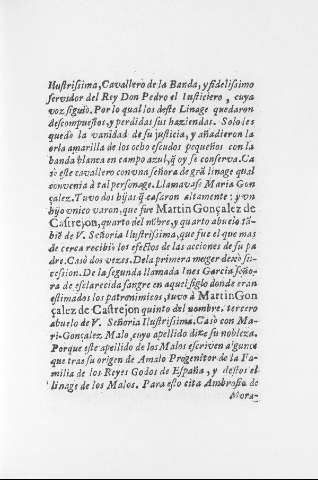 Ilustrissima, Cavallero de la Banda, y fidelissimo
servidor del Rey Don Pedro el Iusticiero, cuya
voz siguiò. Por lo qual los deste Linage quedaron
descompuestos, y perdidas sus haziendas. Solo les
quedò la vanidad de su justicia, y añadieron la
orla amarilla de los ocho escudos pequeños con la
banda blanca en campo azul, q̃ oy se conserva. Ca
sò este cavallero con una señora de grã linage qual
convenia à tal personage. Llamavase Maria Gon
çalez. Tuvo dos hijas q̃ casaron altamente: y un
hijo unico varon, que fue Martin Gonçalez de
Castrejon, quarto del nõbre, y quarto abuelo tã-
biẽ de V. Señoria Ilustrissima, que fue el que mas
de cerca recibiò los efectos de las acciones de su pa
dre. Casò dos vezes. De la primera muger dexò su-
cession. De la segunda llamada Ines Garcia seño-
ra de esclarecida sangre en aquel siglo donde eran
estimados los patronimicos, tuvo à Martin Gon
çalez de Castrejon quinto del nombre, tercero
abuelo de V. Señoria Ilustrissima. Casò con Ma-
ri-Gonçalez Malo, cuyo apellido dize su nobleza.
Porque este apellido de los Malos escriven algunos
que trae su origen de Amalo Progenitor de la Fa-
milia de los Reyes Godos de España, y destos el
linage de los Malos. Para esto cita Ambrosio de
Mora-